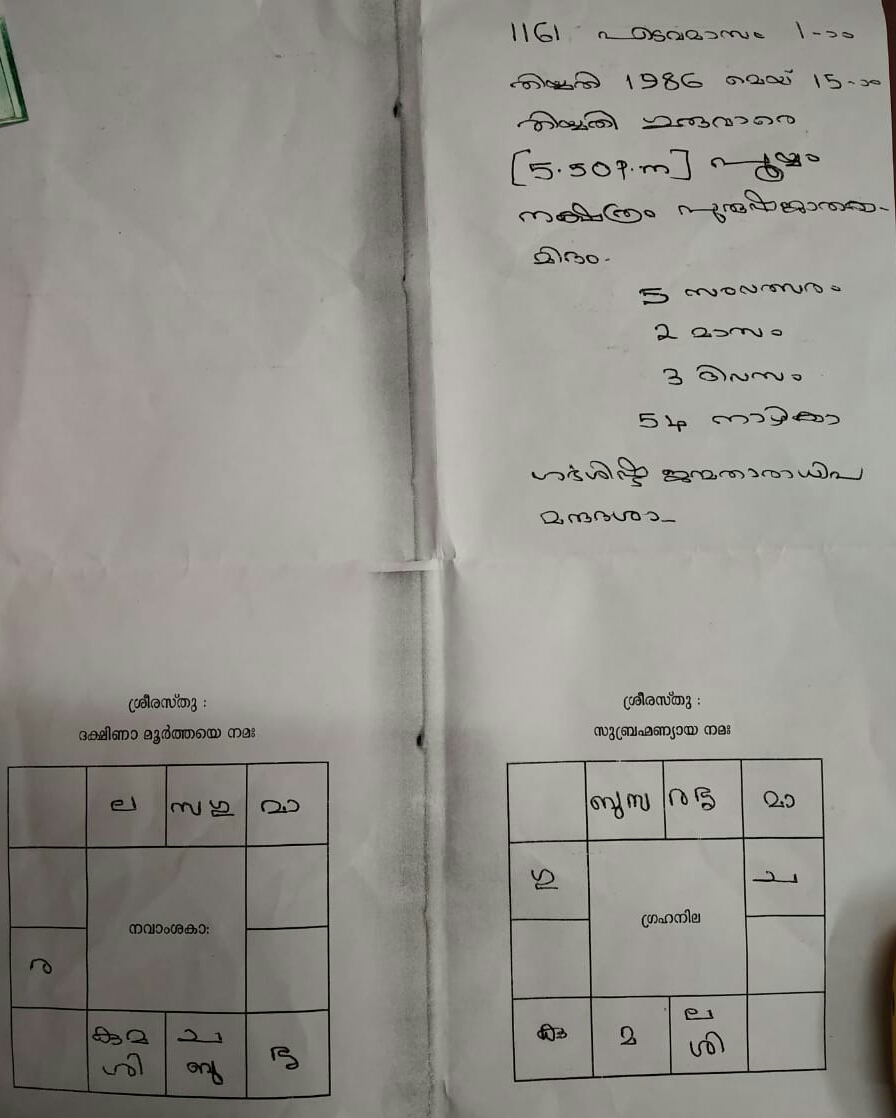 1161 എടവമാസം 1-ാം
തിയ്യതി 1986 മെയ് 15-ാം
തിയ്യതി ഗുരുവാരെ
[5.50 p.m] പൂയ്യം
നക്ഷത്രം പുരുഷജാതക-
മിദം.
5 സംവത്സരം
2 മാസം
3 ദിവസം
54 നാഴികാ
ഗർഭശിഷ്ട ജന്മതാരാധിപ
മന്ദദശാ_
ശ്രീരസ്തു :
ദക്ഷിണാ മൂർത്തയെ നമഃ
ല
സ ഗു
മാ
നവാംശകാ:
ര
കു മ
ശി
ച
ബു
ശ്രീരസ്തു :
സുബ്രഹ്മണ്യായ നമഃ
ബു സ
ര
മാ
ഗു
ച
ഗ്രഹനില
കു
മ
ല
ശി